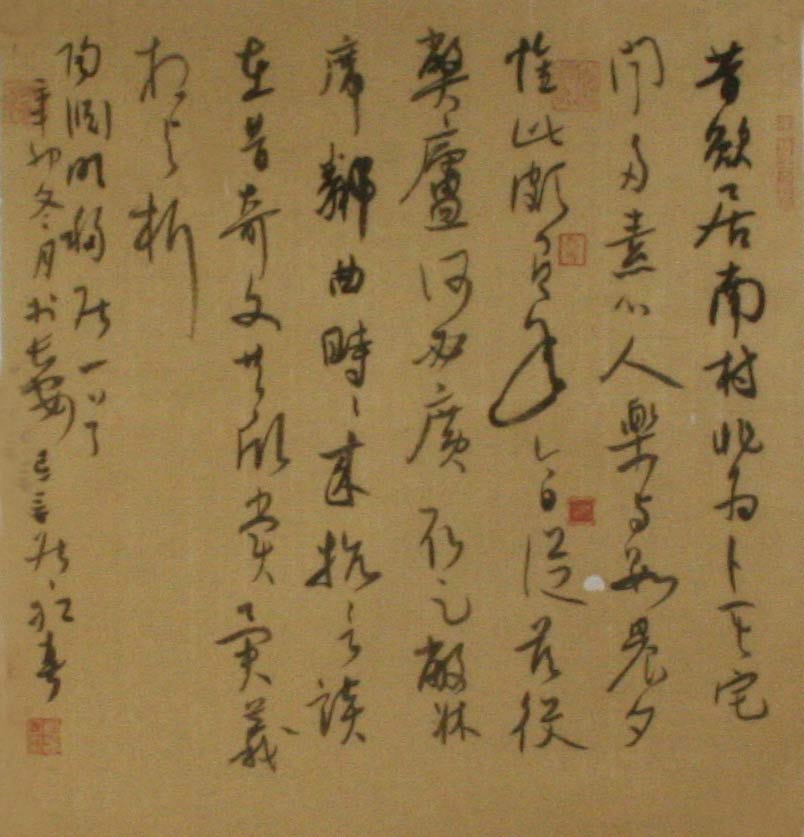 昔欲居南村非為卜其宅
聞多素心人樂與數晨夕
懷此頗有年今日從茲役
弊廬何必廣取足蔽床
席鄰曲時時來抗言談
在昔奇文共欣賞疑義
相與析
陶淵明移居一首
辛卯冬月於長安